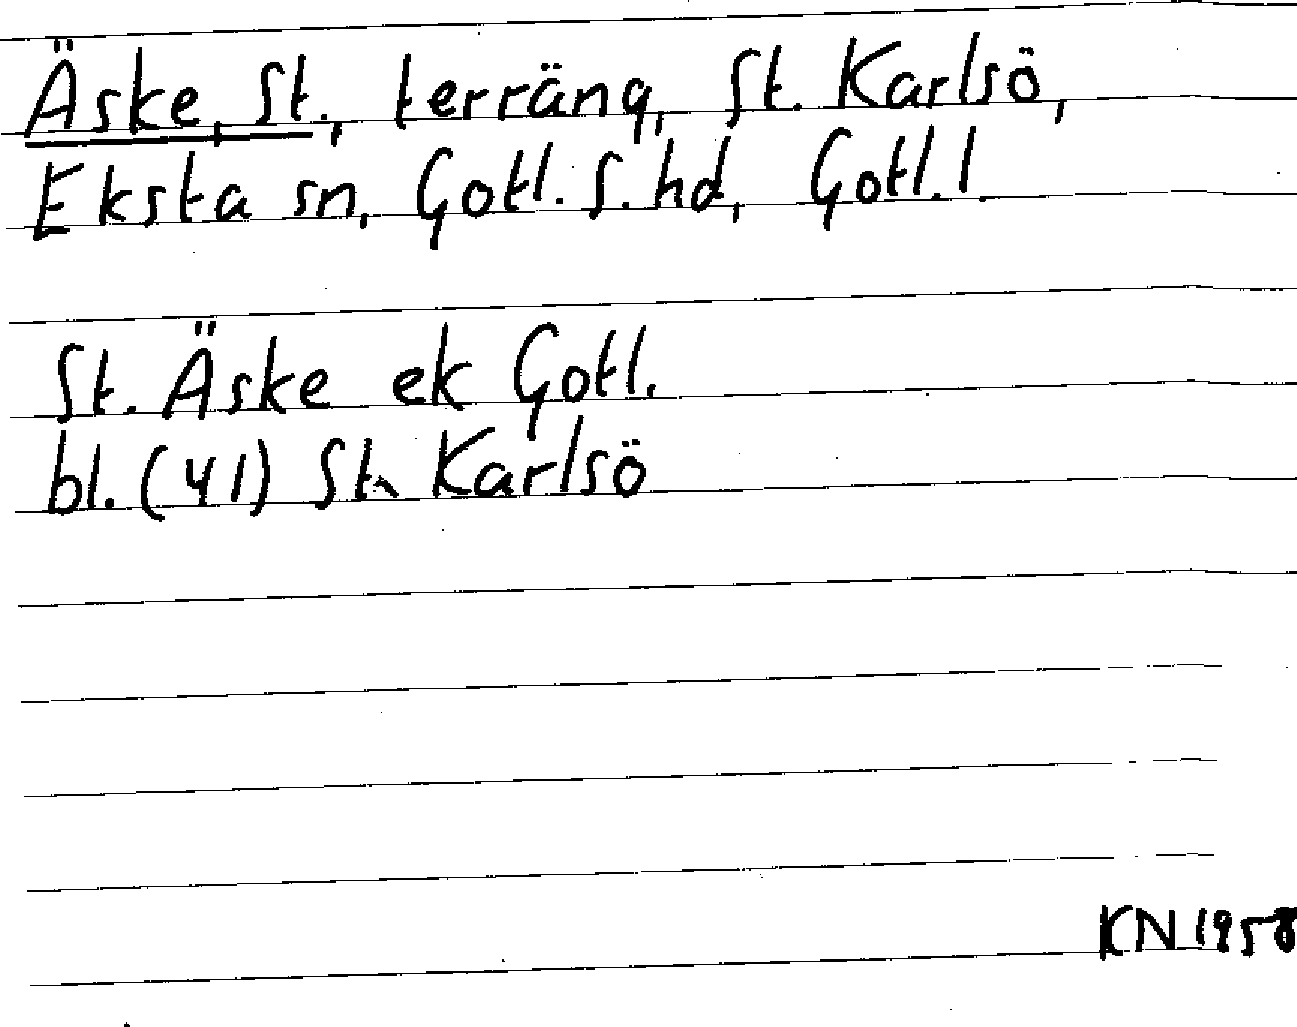 Äske, St., terräng, St. Karlsö,
Eksta sn, Gotl. S. hd, Gotl. l.
St. Äske ek Gotl.
bl. (41) St. Karlsö
KN 1958